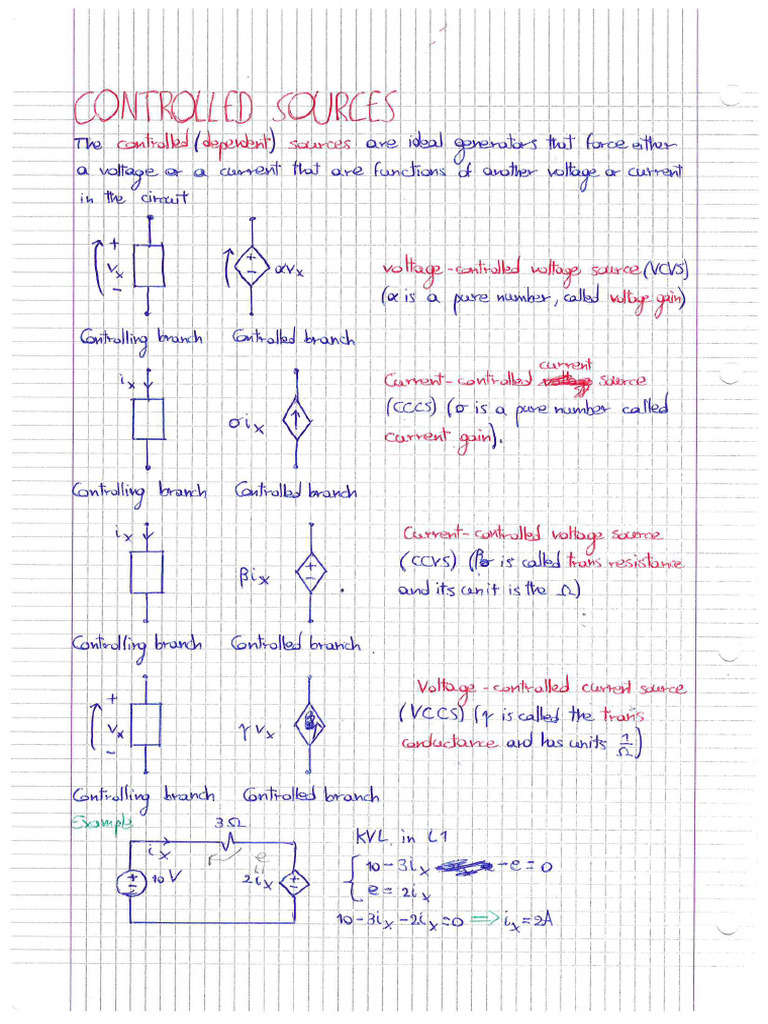 CONTROLLED SOURCES
The controlled (dependent) sources are ideal generators that force either
a voltage or a current that are functions of another voltage or current
in the circuit
+
Vx
-
+
-
αVx
voltage-controlled voltage source (VCVS)
(α is a pure number, called voltage gain)
Controlling branch Controlled branch
ix
σix
current
Current-controlled voltage source
(CCCS) (σ is a pure number called
current gain).
Controlling branch Controlled branch
ix
βix
+
-
Current-controlled voltage source
(CCVS) (β is called trans resistance
and its unit is the Ω)
Controlling branch Controlled branch.
+
Vx
-
γVx
Voltage-controlled current source
(VCCS) (γ is called the trans
conductance and has units 1/Ω)
Controlling branch Controlled branch
Example
3Ω
ix
e
=
+
-
10V
2ix
+
-
KVL in L1
10-3ix -e=0
e=2ix
10-3ix-2ix=0 ⇒ ix=2A